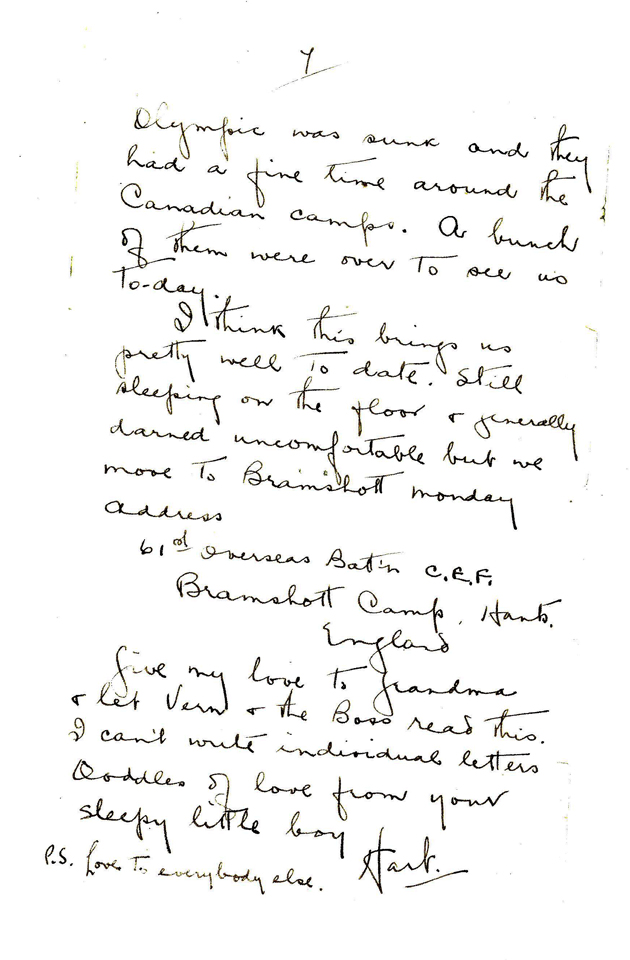 7
Olympic was sunk and they
had a fine time around the
Canadian camps. A bunch
of them were over to see us
to-day.
I think this brings us
pretty well to date. Still
sleeping on the floor & generally
darned uncomfortable but we
move to Bramshott monday
address
61st Overseas Bat'n C.E.F.
Bramshott Camp, Hants.
England
Give my love to Grandma
& let Vern & the Boss read this.
I can't write individual letters
Ooddles of love from your
sleepy little boy
Hart.
P.S. Love to everybody else.